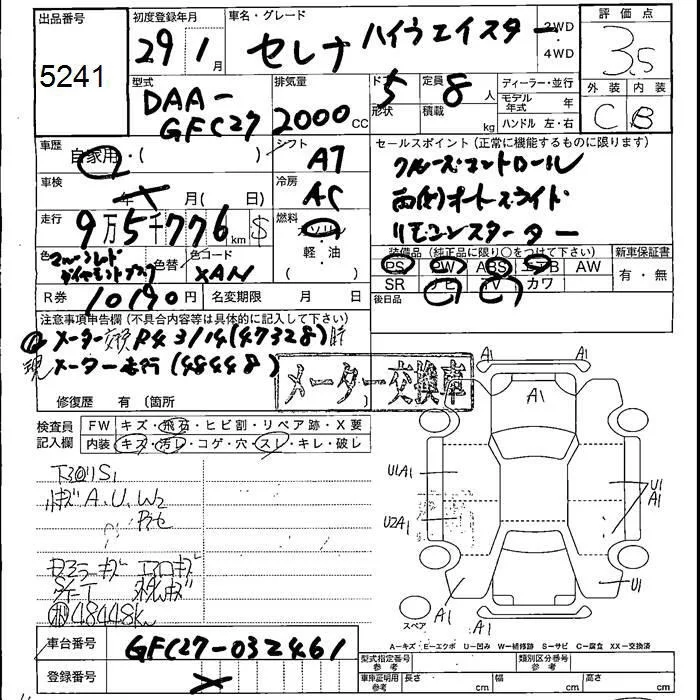 出品番号
5241
初度登録年月
29年1月
車名・グレード
セレナ ハイウェイスター
2WD
4WD
評価点
3.5
外装 内装
C B
型式
DAA-
GFC27
排気量
2000cc
ドア
5
形状
定員
8人
積載
kg
ディーラー・並行
モデル年式 年
ハンドル 左・右
車歴
自家用・( )
シフト
AT
セールスポイント(正常に機能するものに限ります)
クルーズコントロール
両側オートスライド
リモコンスターター
車検
年 月( 日)
冷房
AC
走行
9万5千776km $
燃料
ガソリン
軽・油
色
マルーンレッド
ダイヤモンドブラック
色替
色コード
XAN
装備品(純正品に限り○をつけて下さい)
PS PW ABS エアB AW
SR ナビ TV カワ
後日品
新車保証書
有・無
R券
10190円
名変期限 月 日
注意事項申告欄(不具合内容等は具体的に記入して下さい)
メーター交換R4 3/14(47328)時
現メーター走行(48448)
メーター交換車
修復歴 有(箇所 )
検査員
記入欄
FW キズ・飛石・ヒビ割・リペア跡・X要
内装 キズ・汚レ・コゲ・穴・スレ・キレ・破レ
A.U.W2
48448km
A1
A1
A1
U1A1
U2A1
U1
A1
A1
U1
スペア
A1
A-キズ・E-エクボ U-凹み W-補修跡 S-サビ C-腐食 XX-交換済
車台番号
GFC27-032461
登録番号
型式指定番号
参考
類別区分番号
参考
車庫証明用
参考
長さ cm
幅 cm
高さ cm